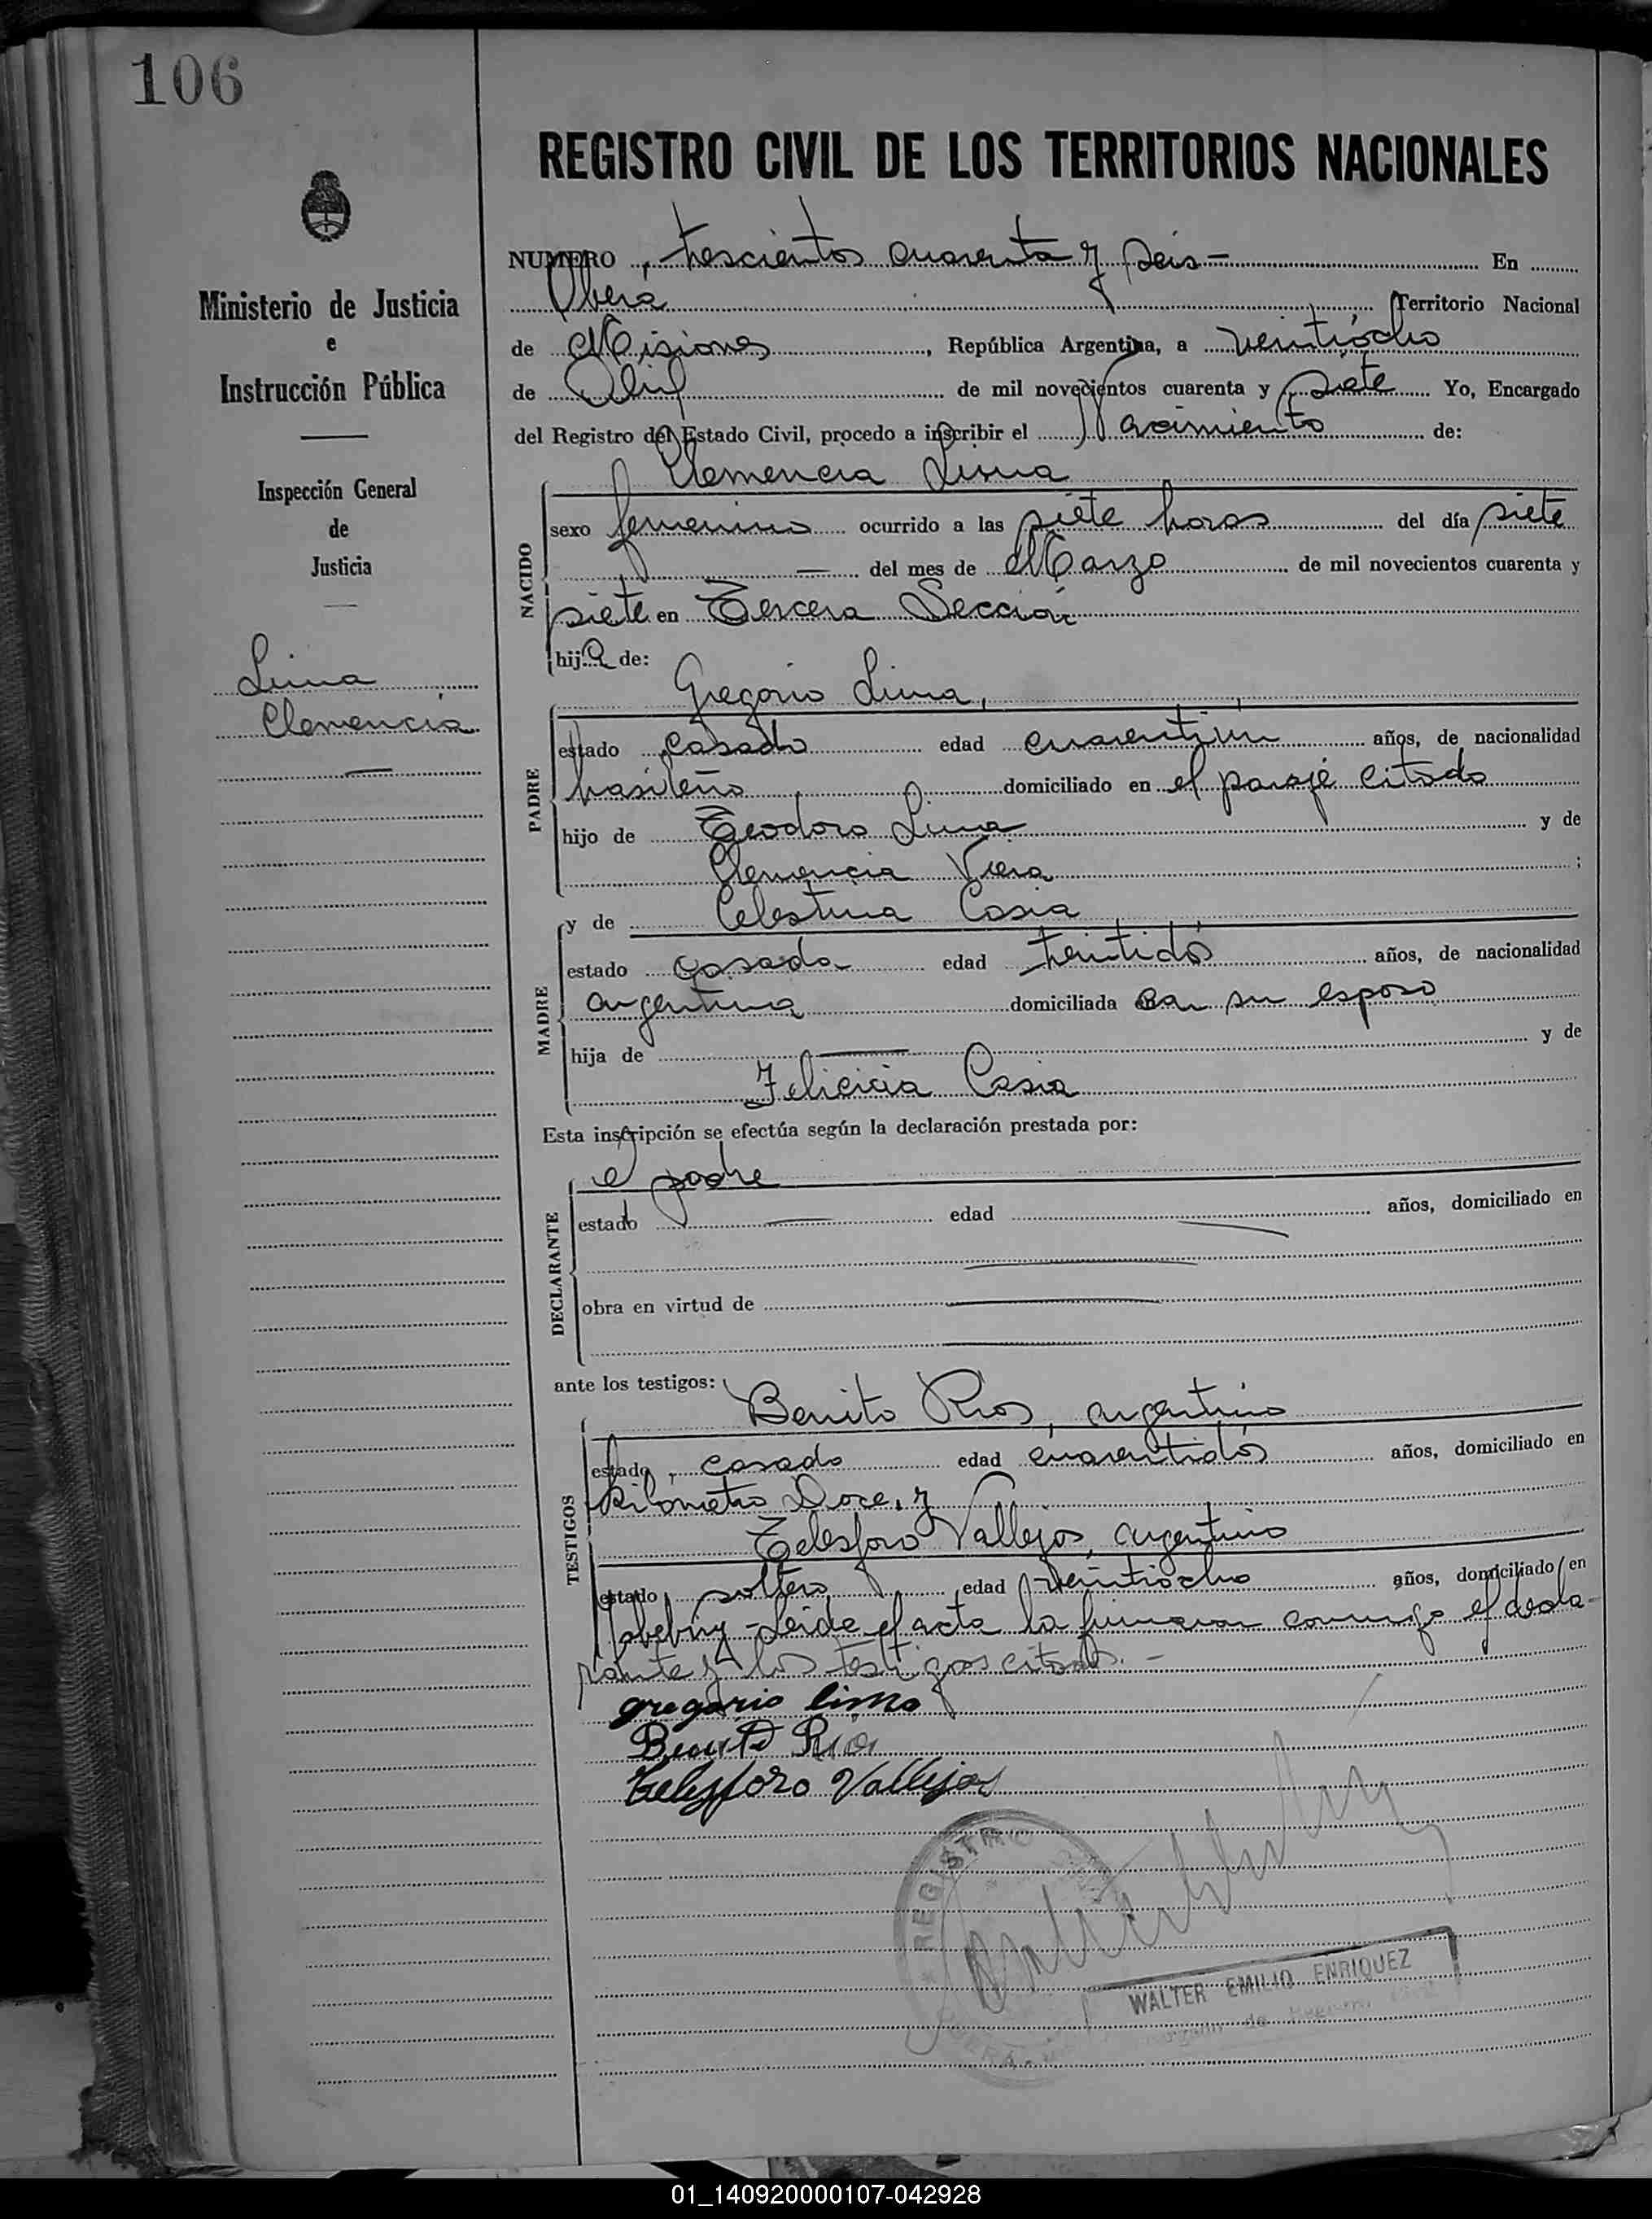 106
REGISTRO CIVIL DE LOS TERRITORIOS NACIONALES
Ministerio de Justicia
e
Instrucción Pública
Inspección General
de
Justicia
Lima
Clemencia
NUMERO trescientos cuarenta y seis - En
Oberá Territorio Nacional
de Misiones, República Argentina, a veintiócho
de Abril de mil novecientos cuarenta y siete Yo, Encargado
del Registro del Estado Civil, procedo a inscribir el Nacimiento de:
Clemencia Lima
NACIDO
sexo femenino ocurrido a las siete horas del día siete
— del mes de Marzo de mil novecientos cuarenta y
siete en Tercera Sección
hija de:
Gregorio Lima,
PADRE
estado casado edad cuarentiun años, de nacionalidad
brasileño domiciliado en el paraje citado
hijo de Teodoro Lima y de
Clemencia Viera ;
y de Celestina Casia
MADRE
estado casada edad treintidós años, de nacionalidad
argentina domiciliada con su esposo
hija de — y de
Felicicia Casia
Esta inscripción se efectúa según la declaración prestada por:
el padre
DECLARANTE
estado — edad — años, domiciliado en
obra en virtud de —
ante los testigos:
Benito Rios, argentino
TESTIGOS
estado, casado edad cuarentidós años, domiciliado en
kilómetro Doce, y
Telesforo Vallejos, argentino
estado soltero edad veintiocho años, domiciliado en
Yabebiry - Leida el acta la firmaron conmigo el decla-
rante y los testigos citados. -
gregorio lima
Benito Rios
Telesforo Vallejos
REGISTRO
WALTER EMILIO ENRIQUEZ
Encargado de Registro Civil
01_140920000107-042928